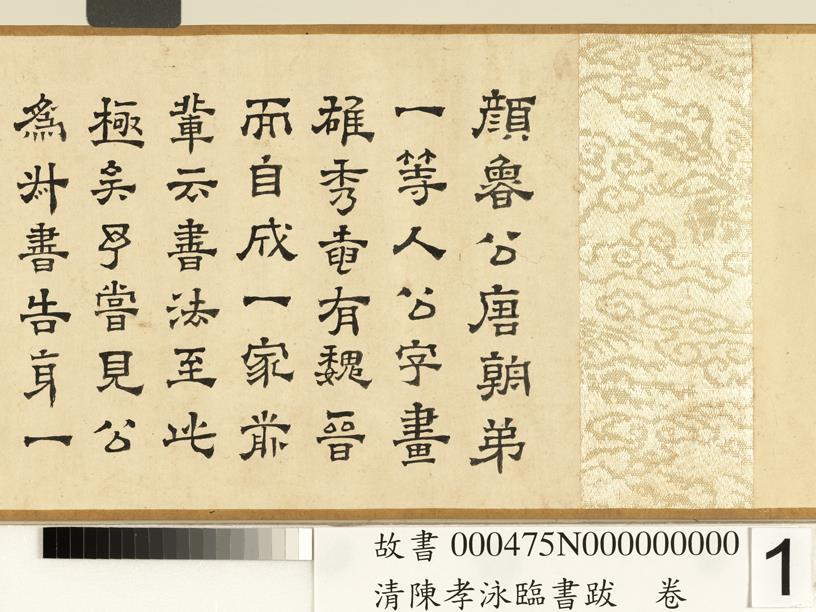 顏魯公唐朝弟
一等人公字畫
雄秀奄有魏晉
而自成一家前
輩云書法至此
極矣予嘗見公
為書告身一
故書 000475N000000000
清陳孝泳臨書跋 卷
1